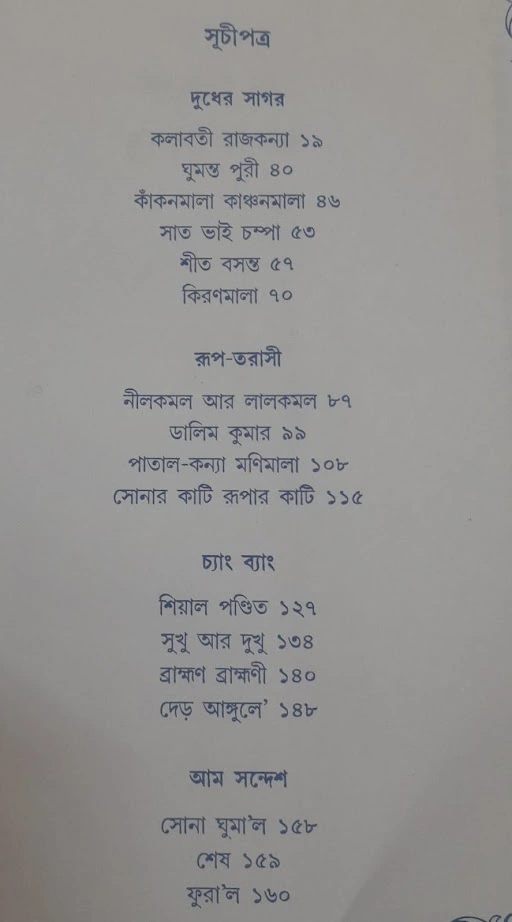 সূচীপত্র
দুধের সাগর
কলাবতী রাজকন্যা ১৯
ঘুমন্ত পুরী ৪০
কাঁকনমালা কাঞ্চনমালা ৪৬
সাত ভাই চম্পা ৫৩
শীত বসন্ত ৫৭
কিরণমালা ৭০
রূপ-তরাসী
নীলকমল আর লালকমল ৮৭
ডালিম কুমার ৯৯
পাতাল-কন্যা মণিমালা ১০৮
সোনার কাটি রূপার কাটি ১১৫
চ্যাং ব্যাং
শিয়াল পণ্ডিত ১২৭
সুখু আর দুখু ১৩৪
ব্রাহ্মণ ব্রাহ্মণী ১৪০
দেড় আঙ্গুলে’ ১৪৮
আম সন্দেশ
সোনা ঘুমা’ল ১৫৮
শেষ ১৫৯
ফুরা’ল ১৬০